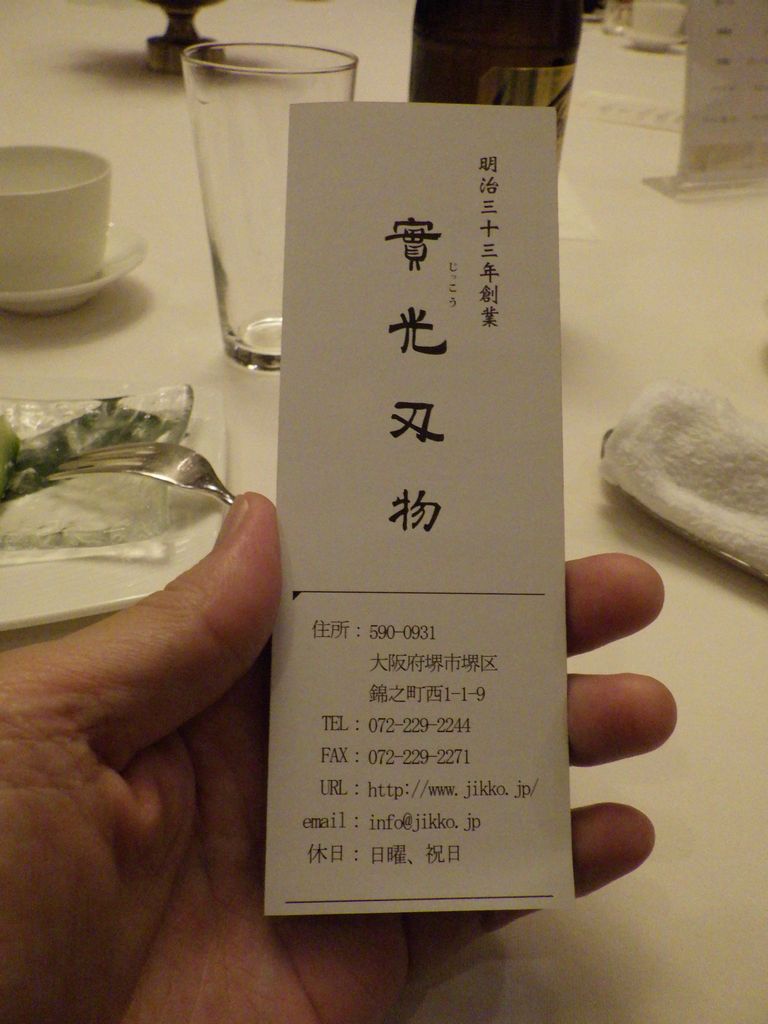 明治三十三年創業
實光刃物
じっこう
住所：590-0931
大阪府堺市堺区
錦之町西1-1-9
TEL：072-229-2244
FAX：072-229-2271
URL：http://www.jikko.jp/
email：info@jikko.jp
休日：日曜、祝日